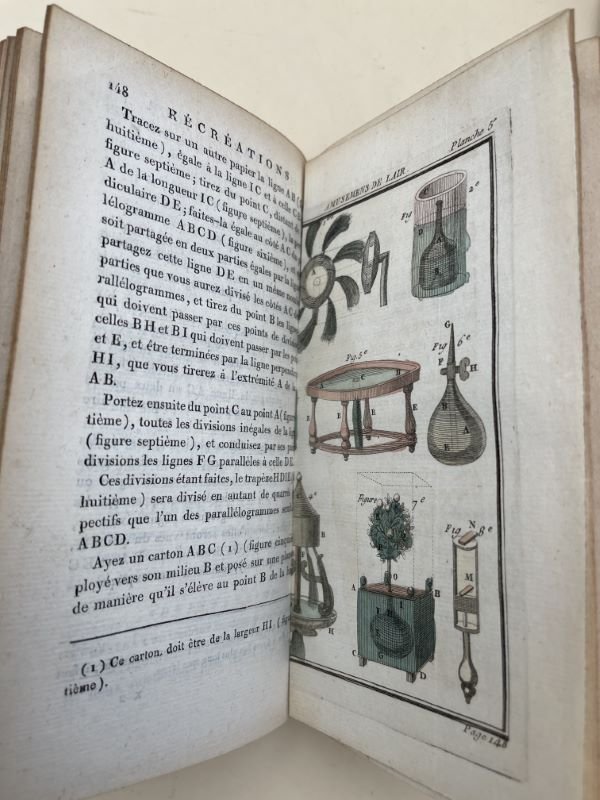 148
RÉCRÉATIONS
Tracez sur un autre papier la ligne AB (
huitième), égale à la ligne IC et à celle C
figure septième; tirez du point C, distant d
A de la longueur IC (figure septième), la
diculaire DE; faites-la égale au côté AC d
lélogramme ABCD (figure sixième), et
soit partagée en deux parties égales par la lig
partagez cette ligne DE en un même nom
parties que vous aurez divisé les côtés AC
rallélogrammes, et tirez du point B les lign
qui doivent passer par ces points de divis
celles BH et BI qui doivent passer par les po
et E, et être terminées par la ligne perpen
HI, que vous tirerez à l'extrémité A de la
AB.
Portez ensuite du point C au point A (fig
tième), toutes les divisions inégales de la
(figure septième), et conduisez par ses
divisions les lignes FG parallèles à celle DE.
Ces divisions étant faites, le trapèze HDIE
huitième) sera divisé en autant de quarrés
pectifs que l'un des parallélogrammes
ABCD.
Ayez un carton ABC (1) (figure cinq
ployé vers son milieu B et posé sur une
de manière qu'il s'élève au point B de la
(1) Ce carton doit être de la largeur HI (fig
tième).
Planche 5e
AMUSEMENS DE LAIR.
Fig 2e
D
A
B
G
Fig 6e
F H
E
A
B
Fig. 5e
B
C
A
E
4e
H
Figure 7e
O
A B
I I
F
E
G
C D
Fig 8e
N
M
Page 148